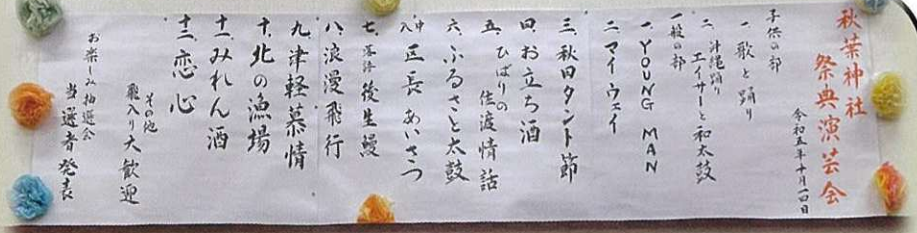 秋葉神社
祭典演芸会
令和五年十月一四日
子供の部
一、歌と踊り
二、沖縄踊り
エイサーと和太鼓
一般の部
一、YOUNG MAN
二、マイウェイ
三、秋田タント節
四、お立ち酒
五、ひばりの佐渡情話
六、ふるさと太鼓
中入 区長あいさつ
七、落語 後生鰻
八、浪漫飛行
九、津軽慕情
十、北の漁場
十一、みれん酒
十二、恋心
その他
飛入り大歓迎
お楽しみ抽選会
当選者発表